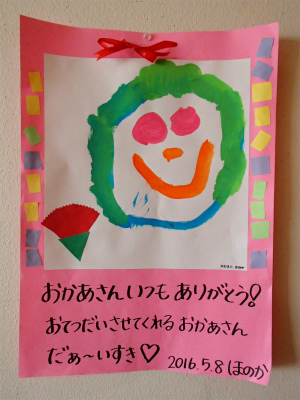 おかあさんいつもありがとう!
おてつだいさせてくれるおかあさん
だぁ〜いすき♡
2016.5.8 ほのか